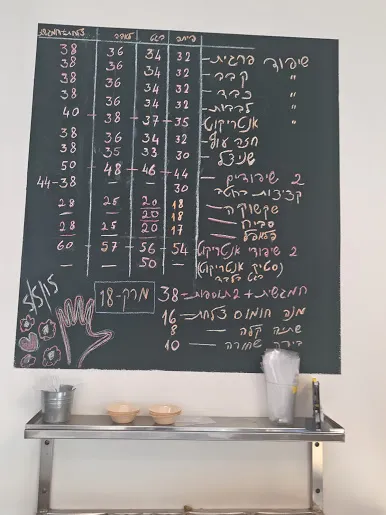 פיתה בגט לאפה
שיפוד פרגית - 32 34 36 38
" קבב - 32 34 36 38
" כבד - 32 34 36 38
" לבבות - 32 34 36 38
אנטריקוט - 35 - 37 - 38 - 40
חזה עוף - 32 34 36 38
שניצל - 30 33 35 38
2 שיפודים - 44 - 46 - 48 50
קציצות ברוטב 30 — — 44-38
שקשוקה — 18 20 25 28
סביח — 18 20 — —
פלאפל — 17 20 25 28
2 שיפודי אנטריקוט 54 - 56 - 57 - 60
(סטייק אנטריקוט) — 50 — —
בגט בלבד
חמגשית + 2 תוספות - 38
מרק - 18
מנה חומוס צלחת - 16
שתיה קלה — 8
בירה שחורה — 10
5/5/15